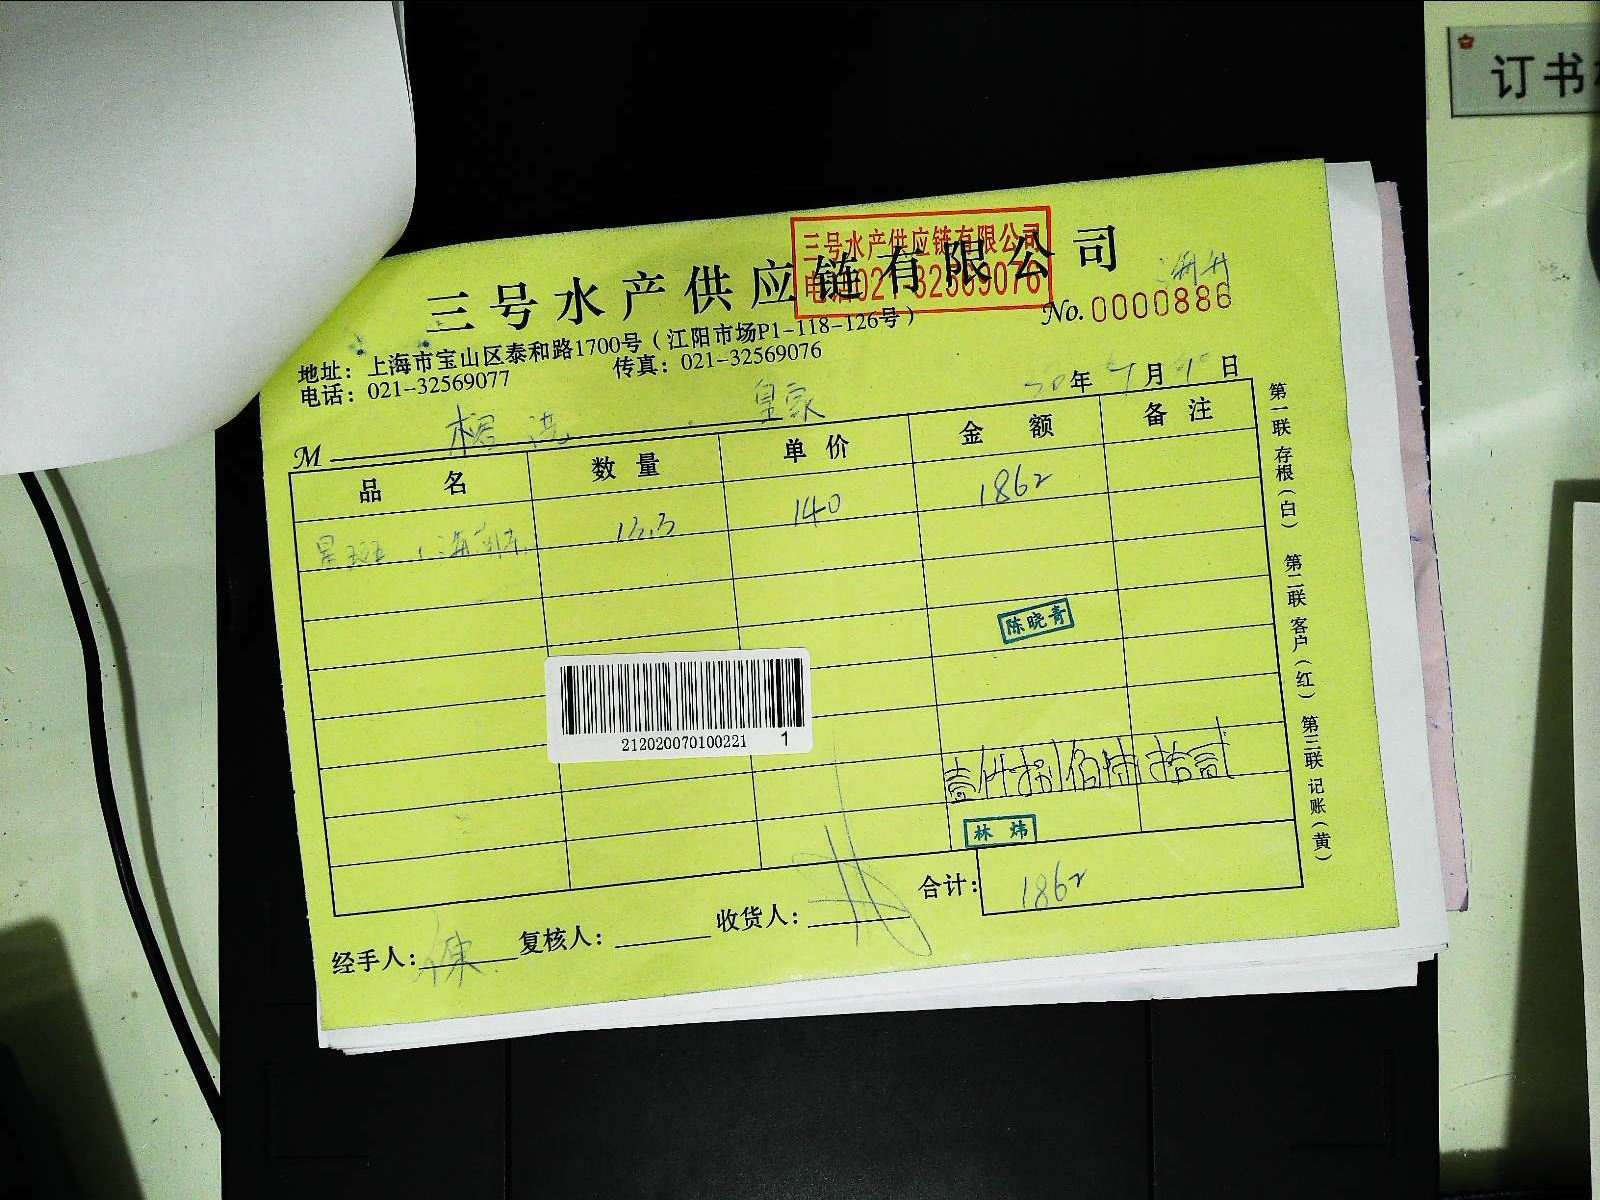 订书
三号水产供应链有限公司
三号水产供应链有限公司
电话021-32569076
No.0000886
地址：上海市宝山区泰和路1700号（江阳市场P1-118-126号）
电话：021-32569077 传真：021-32569076
皇家
20年 月 日
M
品名 数量 单价 金额 备注
星斑 13.3 140 1862
陈晓青
212020070100221 1
壹仟捌佰陆拾贰
林炜
合计：1862
经手人：陳 复核人： 收货人：
第一联 存根（白） 第二联 客户（红） 第三联 记账（黄）